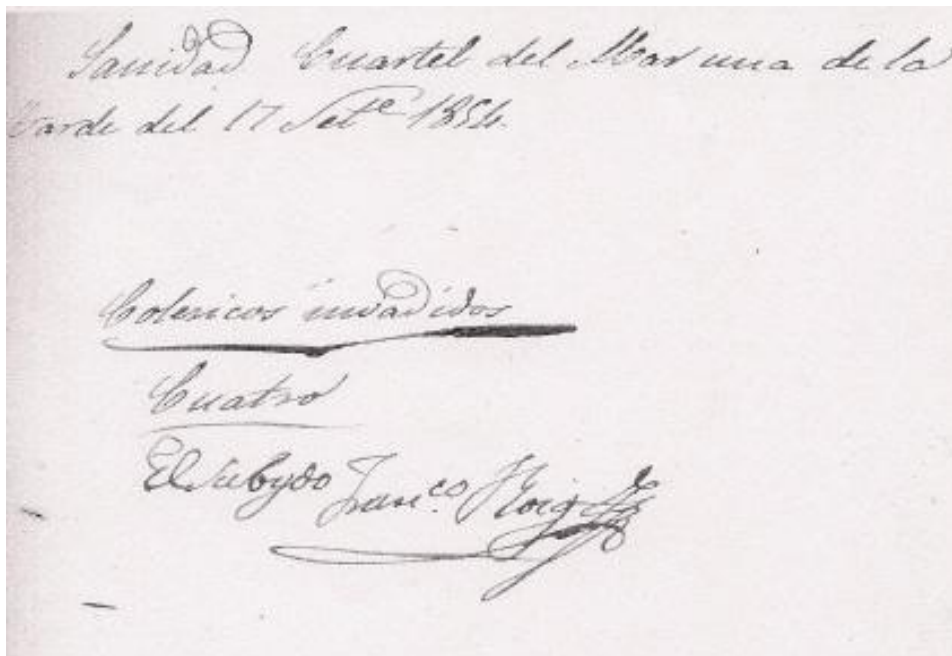 Sanidad Cuartel del Mar una de la
tarde del 17 Set.e 1854.
Colericos invadidos
Cuatro
El Subydo Fran.co Roig